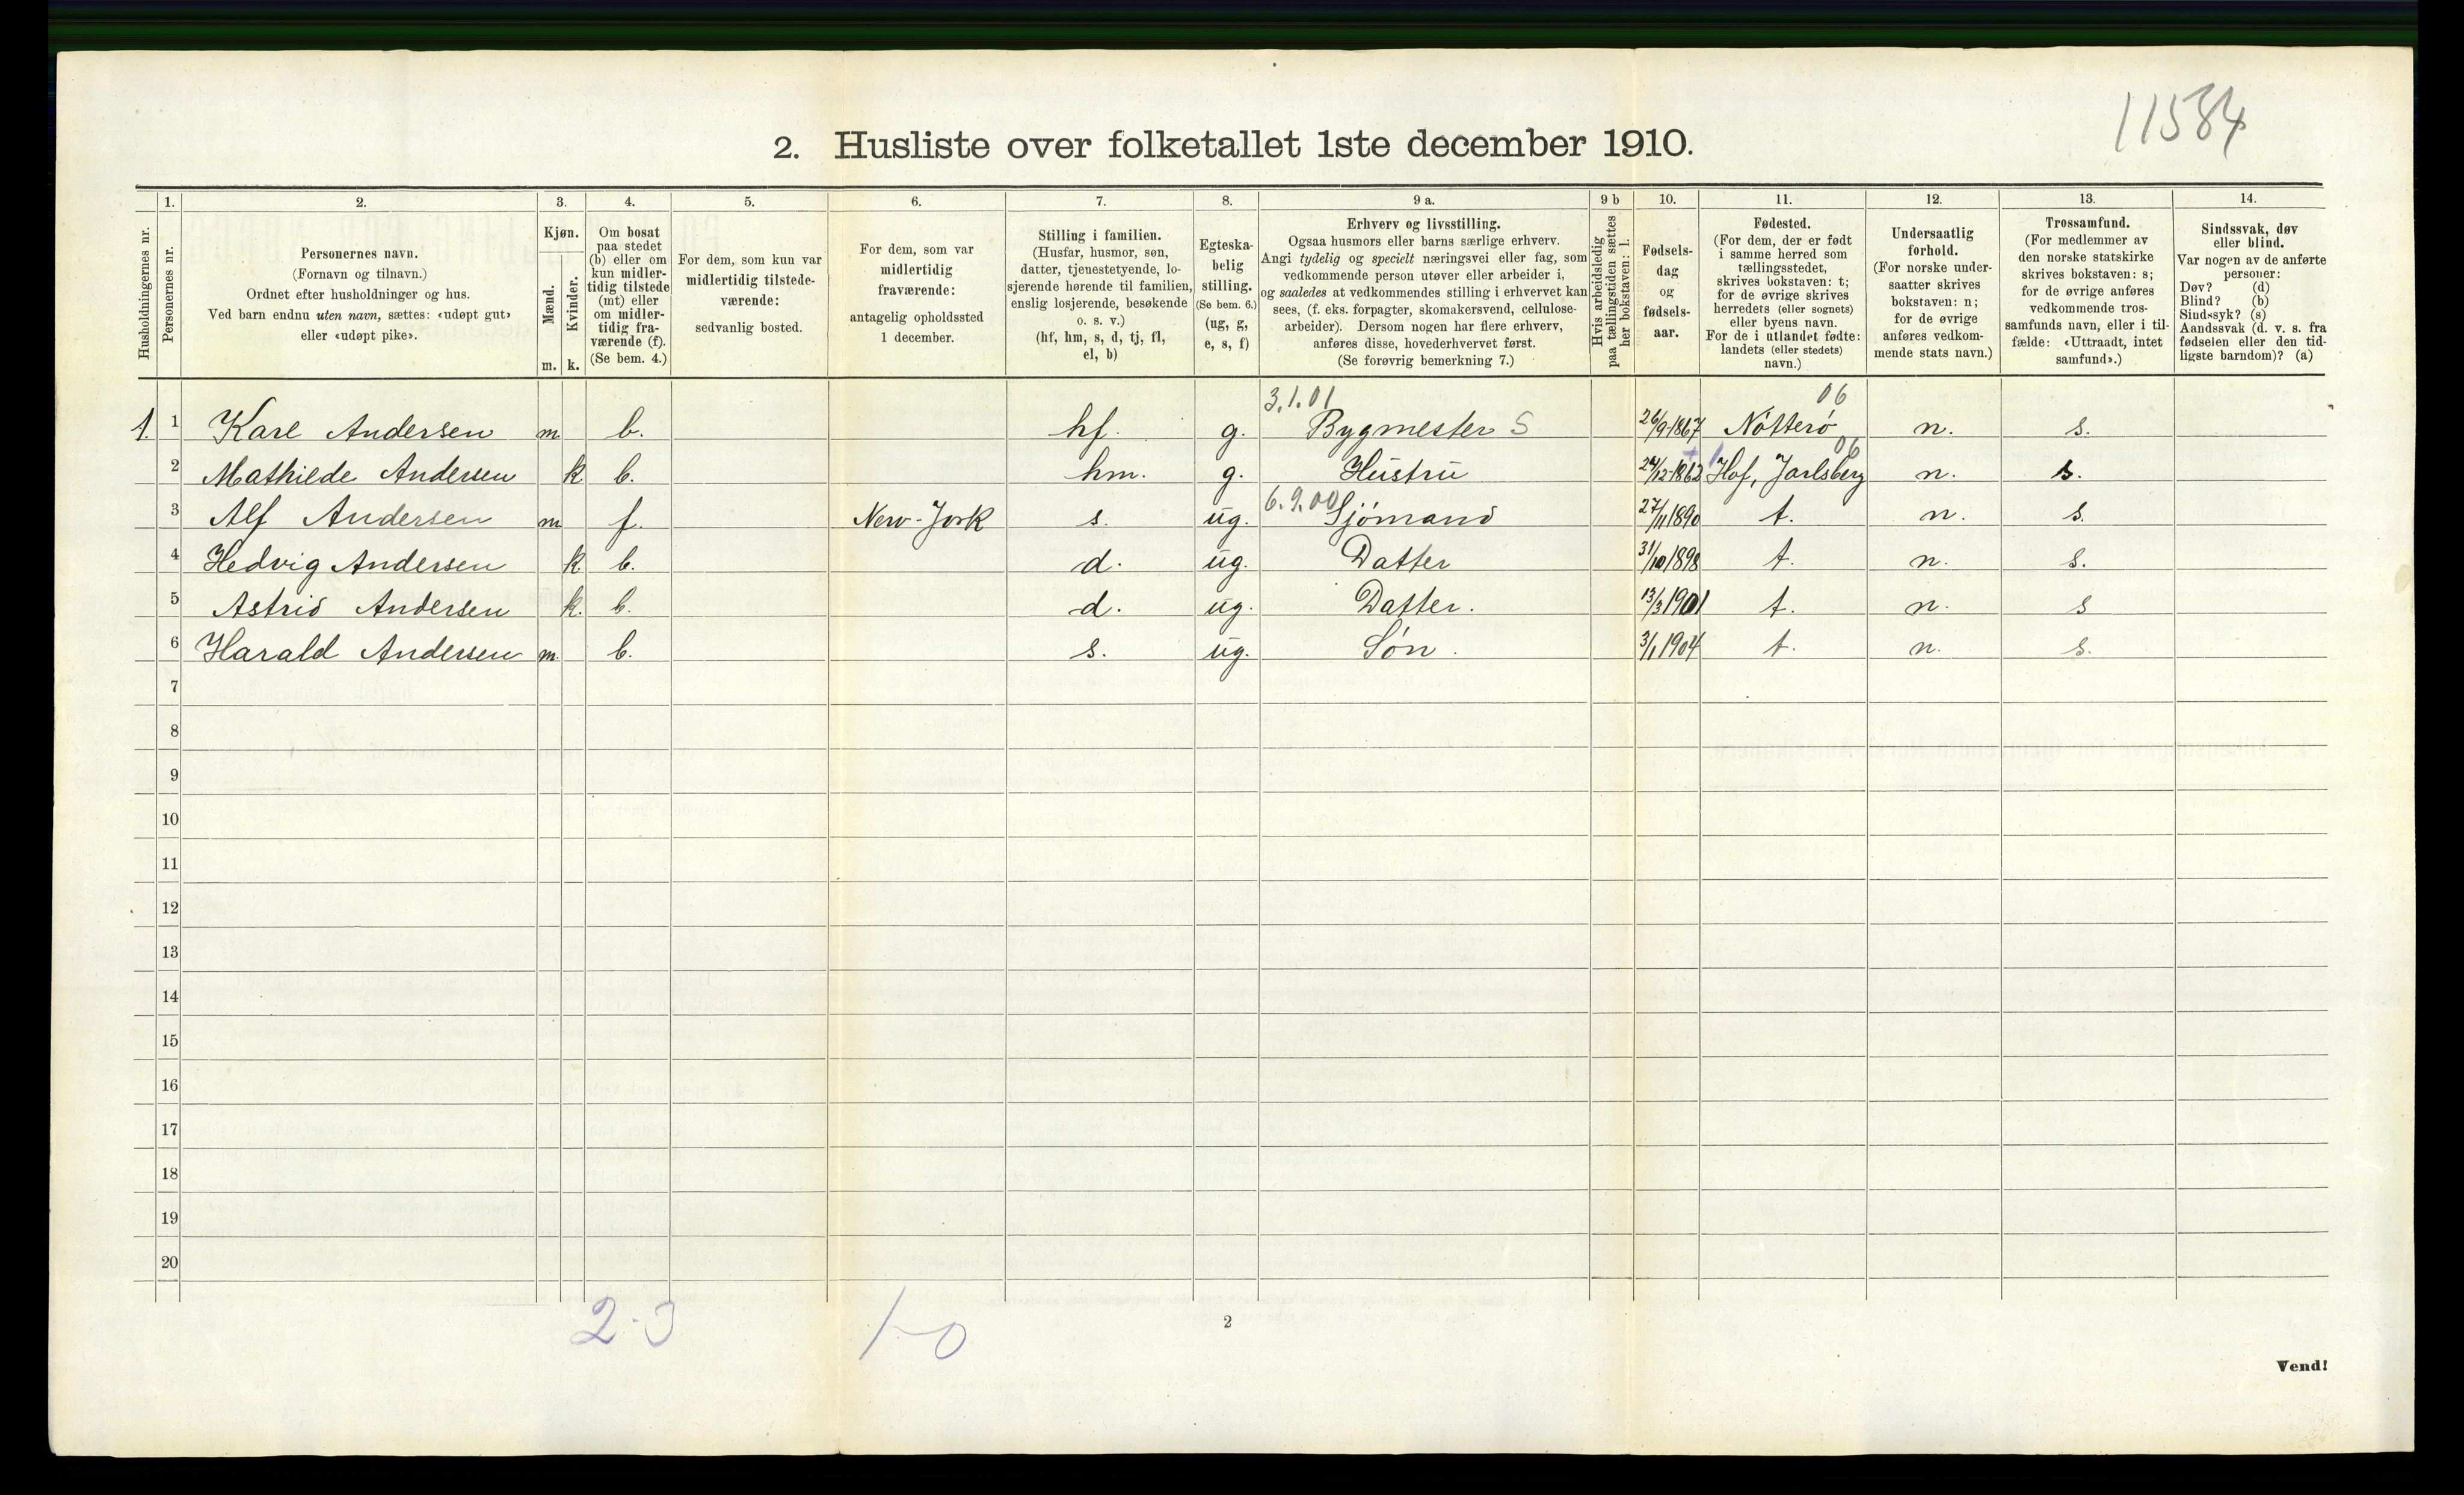 11584
2. Husliste over folketallet 1ste december 1910.
Husholdningernes nr.
1.
Personernes nr.
2.
Personernes navn.
(Fornavn og tilnavn.)
Ordnet efter husholdninger og hus.
Ved barn endnu uten navn, sættes: «udøpt gut»
eller «udøpt pike».
3.
Kjøn.
Mænd.
Kvinder.
m. k.
4.
Om bosat
paa stedet
(b) eller om
kun midler-
tidig tilstede
(mt) eller
om midler-
tidig fra-
værende (f).
(Se bem. 4.)
5.
For dem, som kun var
midlertidig tilstede-
værende:
sedvanlig bosted.
6.
For dem, som var
midlertidig
fraværende:
antagelig opholdssted
1 december.
7.
Stilling i familien.
(Husfar, husmor, søn,
datter, tjenestetyende, lo-
sjerende hørende til familien,
enslig losjerende, besøkende
o. s. v.)
(hf, hm, s, d, tj, fl,
el, b)
8.
Egteska-
belig
stilling.
(Se bem. 6.)
(ug, g,
e, s, f)
9 a.
Erhverv og livsstilling.
Ogsaa husmors eller barns særlige erhverv.
Angi tydelig og specielt næringsvei eller fag, som
vedkommende person utøver eller arbeider i,
og saaledes at vedkommendes stilling i erhvervet kan
sees, (f. eks. forpagter, skomakersvend, cellulose-
arbeider). Dersom nogen har flere erhverv,
anføres disse, hovederhvervet først.
(Se forøvrig bemerkning 7.)
9 b
Hvis arbeidsledig
paa tællingstiden sættes
her bokstaven: l.
10.
Fødsels-
dag
og
fødsels-
aar.
11.
Fødested.
(For dem, der er født
i samme herred som
tællingsstedet,
skrives bokstaven: t;
for de øvrige skrives
herredets (eller sognets)
eller byens navn.
For de i utlandet fødte:
landets (eller stedets)
navn.)
12.
Undersaatlig
forhold.
(For norske under-
saatter skrives
bokstaven: n;
for de øvrige
anføres vedkom-
mende stats navn.)
13.
Trossamfund.
(For medlemmer av
den norske statskirke
skrives bokstaven: s;
for de øvrige anføres
vedkommende tros-
samfunds navn, eller i til-
fælde: «Uttraadt, intet
samfund».)
14.
Sindssvak, døv
eller blind.
Var nogen av de anførte
personer:
Døv? (d)
Blind? (b)
Sindssyk? (s)
Aandssvak (d. v. s. fra
fødselen eller den tid-
ligste barndom)? (a)
3.1.01 06
1. 1 Karl Andersen m b. hf. g. Bygmester S 26/9-1867 Nøtterø n. s.
06
2 Mathilde Andersen k b. hm. g. Hustru 24/12-1862 Hof, Jarlsberg n. s.
6.9.00
3 Alf Andersen m f. New-York s. ug. Sjømand 27/11 1890 t. n. s.
4 Hedvig Andersen k b. d. ug. Datter 31/10 1898 t. n. s.
5 Astrid Andersen k. b. d. ug. Datter. 13/3 1901 t. n. s
6 Harald Andersen m. b. s. ug. Søn. 3/1 1904 t. n. s.
7
8
9
10
11
12
13
14
15
16
17
18
19
20
2-3 1-0
2
Vend!